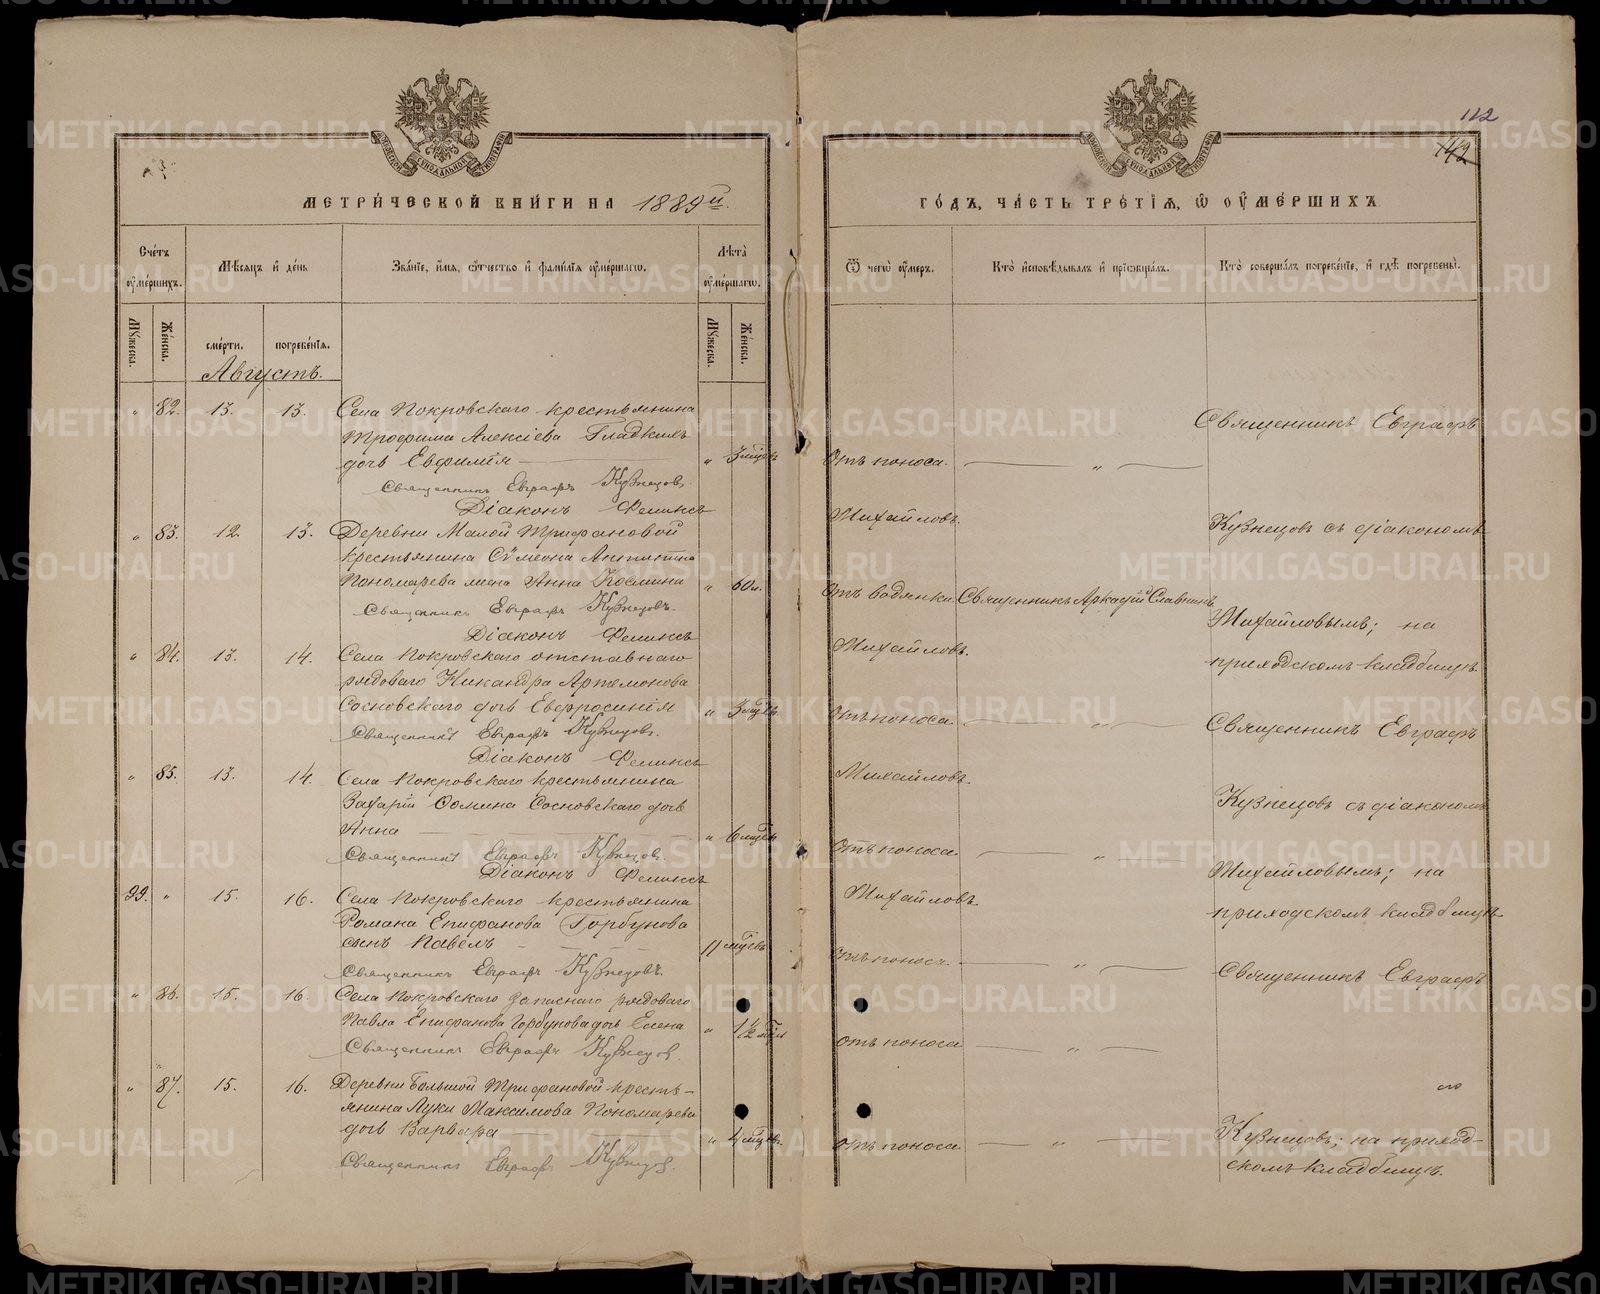 112
142
МЕТРИЧЕСКОЙ КНИГИ НА 1889й.
ГОДЪ, ЧАСТЬ ТРЕТІЯ, Ѿ ОУМЕРШИХЪ
Счетъ оумершихъ.
Мѣсяцъ и день
Званіе, имя, отчество и фамилія оумершагω.
Лѣта оумершагω.
Ѿ чегω оумеръ.
Кто исповѣдывалъ и пріобщалъ.
Кто совершалъ погребеніе, и гдѣ погребены.
Мужеска.
Женска.
смерти.
погребенія.
Мужеска.
Женска.
Августъ.
" 82. 13. 13. Села Покровскаго крестьянина
Трофима Алексіева Гладкихъ
дочь Евфимія " 3 мѣсц. Отъ поноса. "
Священникъ Евграфъ Кузнецовъ.
Діаконъ Феликсъ Михайловъ.
" 83. 12. 13. Деревни Малой Трифановой
крестьянина Сѵмеона Антипина
Пономарева жена Анна Космина " 60 л. Отъ водянки. Священникъ Аркадій Славнинъ.
Священникъ Евграфъ Кузнецовъ.
Діаконъ Феликсъ Михайловъ.
" 84. 13. 14. Села Покровскаго отставнаго
рядоваго Никандра Артемонова
Сосновскаго дочь Евфросинія " 3 мѣсц. Отъ поноса. "
Священникъ Евграфъ Кузнецовъ.
Діаконъ Феликсъ Михайловъ.
" 85. 13. 14. Села Покровскаго крестьянина
Захаріи Ѳомина Сосновскаго дочь
Анна " 6 мѣсц. Отъ поноса. "
Священникъ Евграфъ Кузнецовъ.
Діаконъ Феликсъ Михайловъ.
99. " 15. 16. Села Покровскаго крестьянина
Романа Епифанова Горбунова
сынъ Павелъ 11 мѣсц. Отъ поноса. "
Священникъ Евграфъ Кузнецовъ.
" 86. 15. 16. Села Покровскаго запаснаго рядоваго
Павла Епифанова Горбунова дочь Елена " 1½ отъ поноса "
Священникъ Евграфъ Кузнецовъ.
" 87. 15. 16. Деревни Большой Трифановой кресть-
янина Луки Максимова Пономарева
дочь Варвара " 4 мѣсц. отъ поноса "
Священникъ Евграфъ Кузнецовъ.
Священникъ Евграфъ
Кузнецовъ съ діакономъ
Михайловымъ; на
приходскомъ кладбищѣ.
Священникъ Евграфъ
Кузнецовъ съ діакономъ
Михайловымъ; на
приходскомъ кладбищѣ.
Священникъ Евграфъ
Кузнецовъ; на приход-
скомъ кладбищѣ.
METRIKI.GASO-URAL.RU